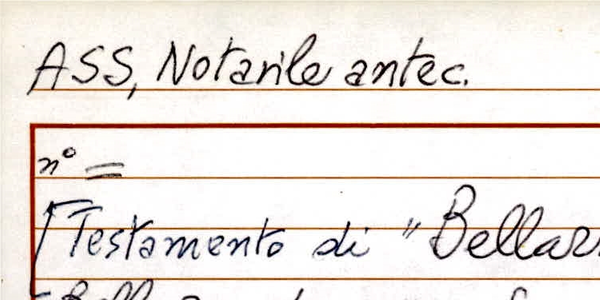 ASS, Notarile antec.
n° =
Testamento di "Bellar